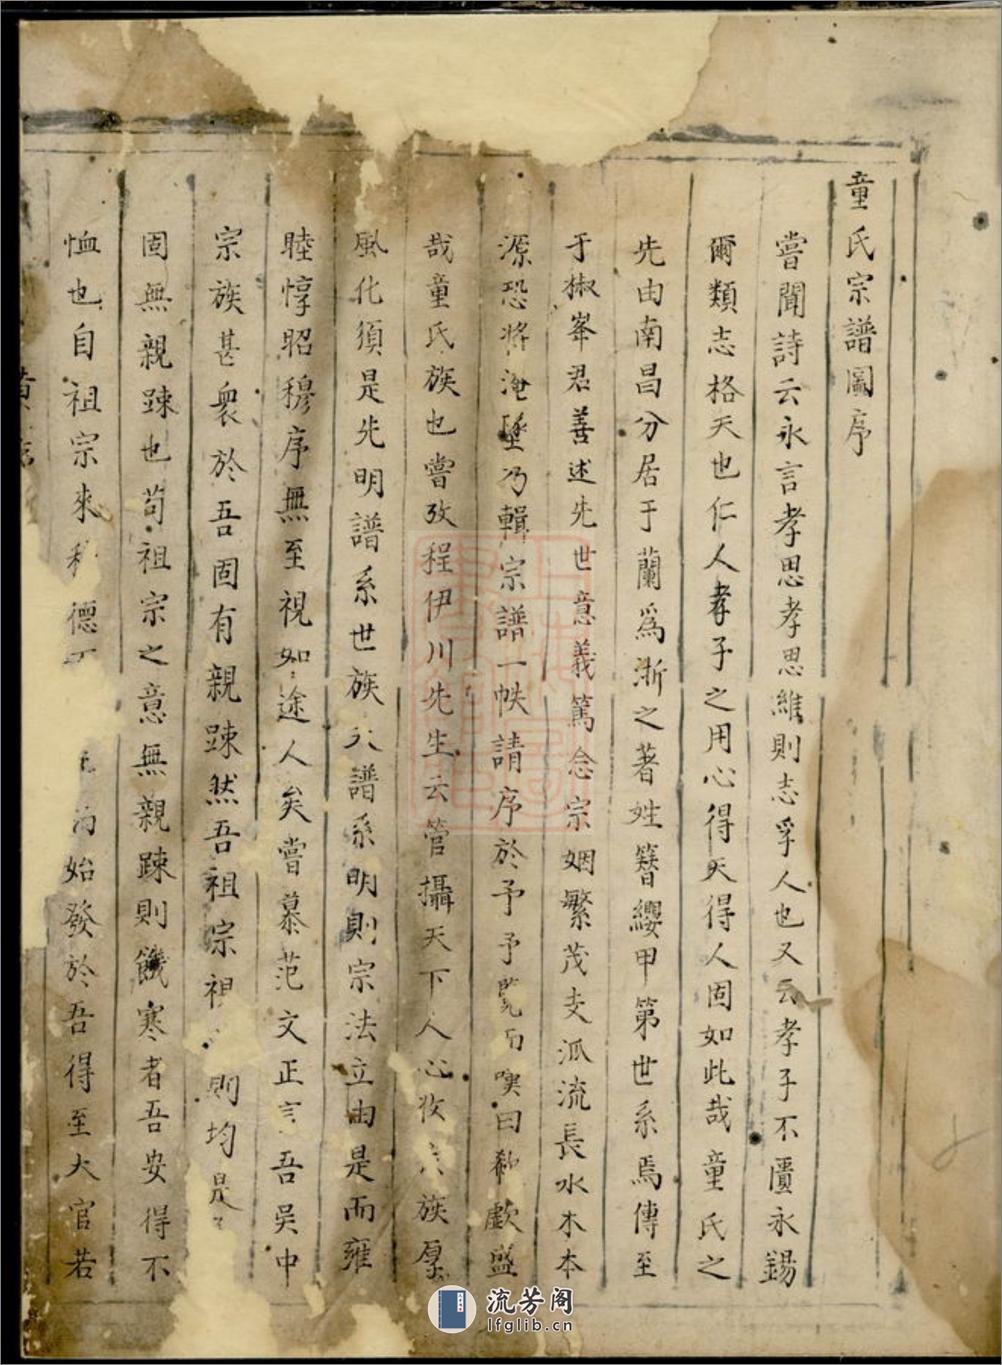 童氏宗譜圖序
嘗聞詩云永言孝思孝思維則志孚人也又云孝子不匱永錫
爾類志格天也仁人孝子之用心得天得人固如此哉童氏之
先由南昌分居于蘭爲浙之著姓簪纓甲第世系焉傳至
于椒峯君善述先世意義篤念宗姻繁茂支派流長水木本
源恐將淹墜乃輯宗譜一帙請序於予予覧而嘆曰猗歟盛
哉童氏族也嘗攷程伊川先生云管攝天下人心收宗族厚
風化須是先明譜系世族譜系明則宗法立由是而雍
睦惇昭穆序無至視如途人矣嘗慕范文正言吾吴中
宗族甚衆於吾固有親踈然吾祖宗視則均是
固無親踈也苟祖宗之意無親踈則饑寒者吾安得不
恤也自祖宗來積德始發於吾得至大官若
流芳阁
lfglib.cn